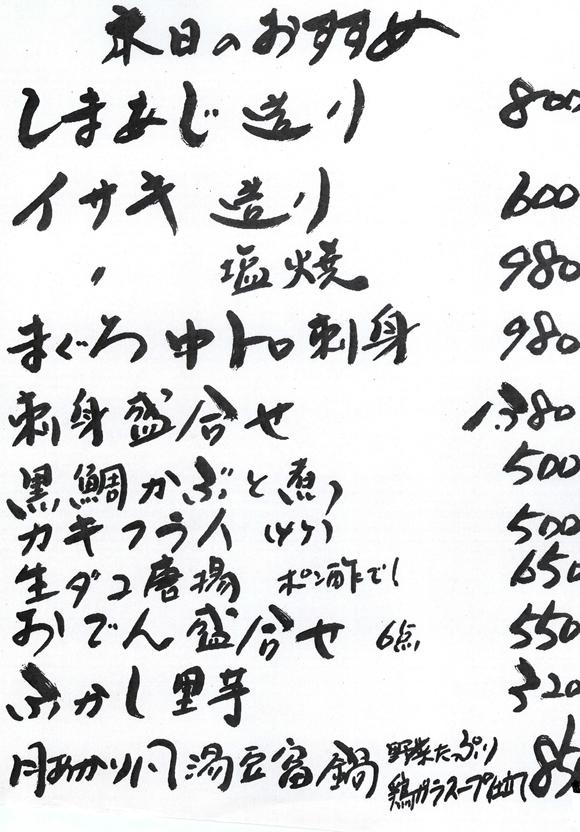 本日のおすすめ
しまあじ造り 800
イサキ造り 600
〃 塩焼 980
まぐろ中トロ刺身 980
刺身盛合せ
黒鯛かぶと煮つ 500
カキフライ (4ケ) 500
生ダコ唐揚 ポン酢で! 650
おでん盛合せ 6点 550
ふかし里芋 320
月あかり風湯豆富鍋 野菜たっぷり 850
鶏ガラスープ仕立て